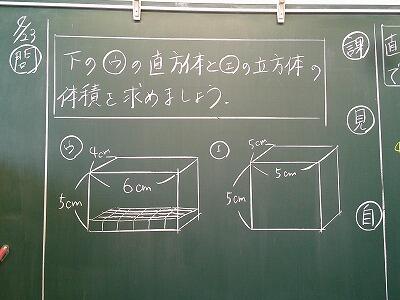 9/23
問
下の㋒の直方体と㋓の立方体の
体積を求めましょう。
㋒
4cm
6cm
5cm
㋓
5cm
5cm
5cm
課
見
自
直
で